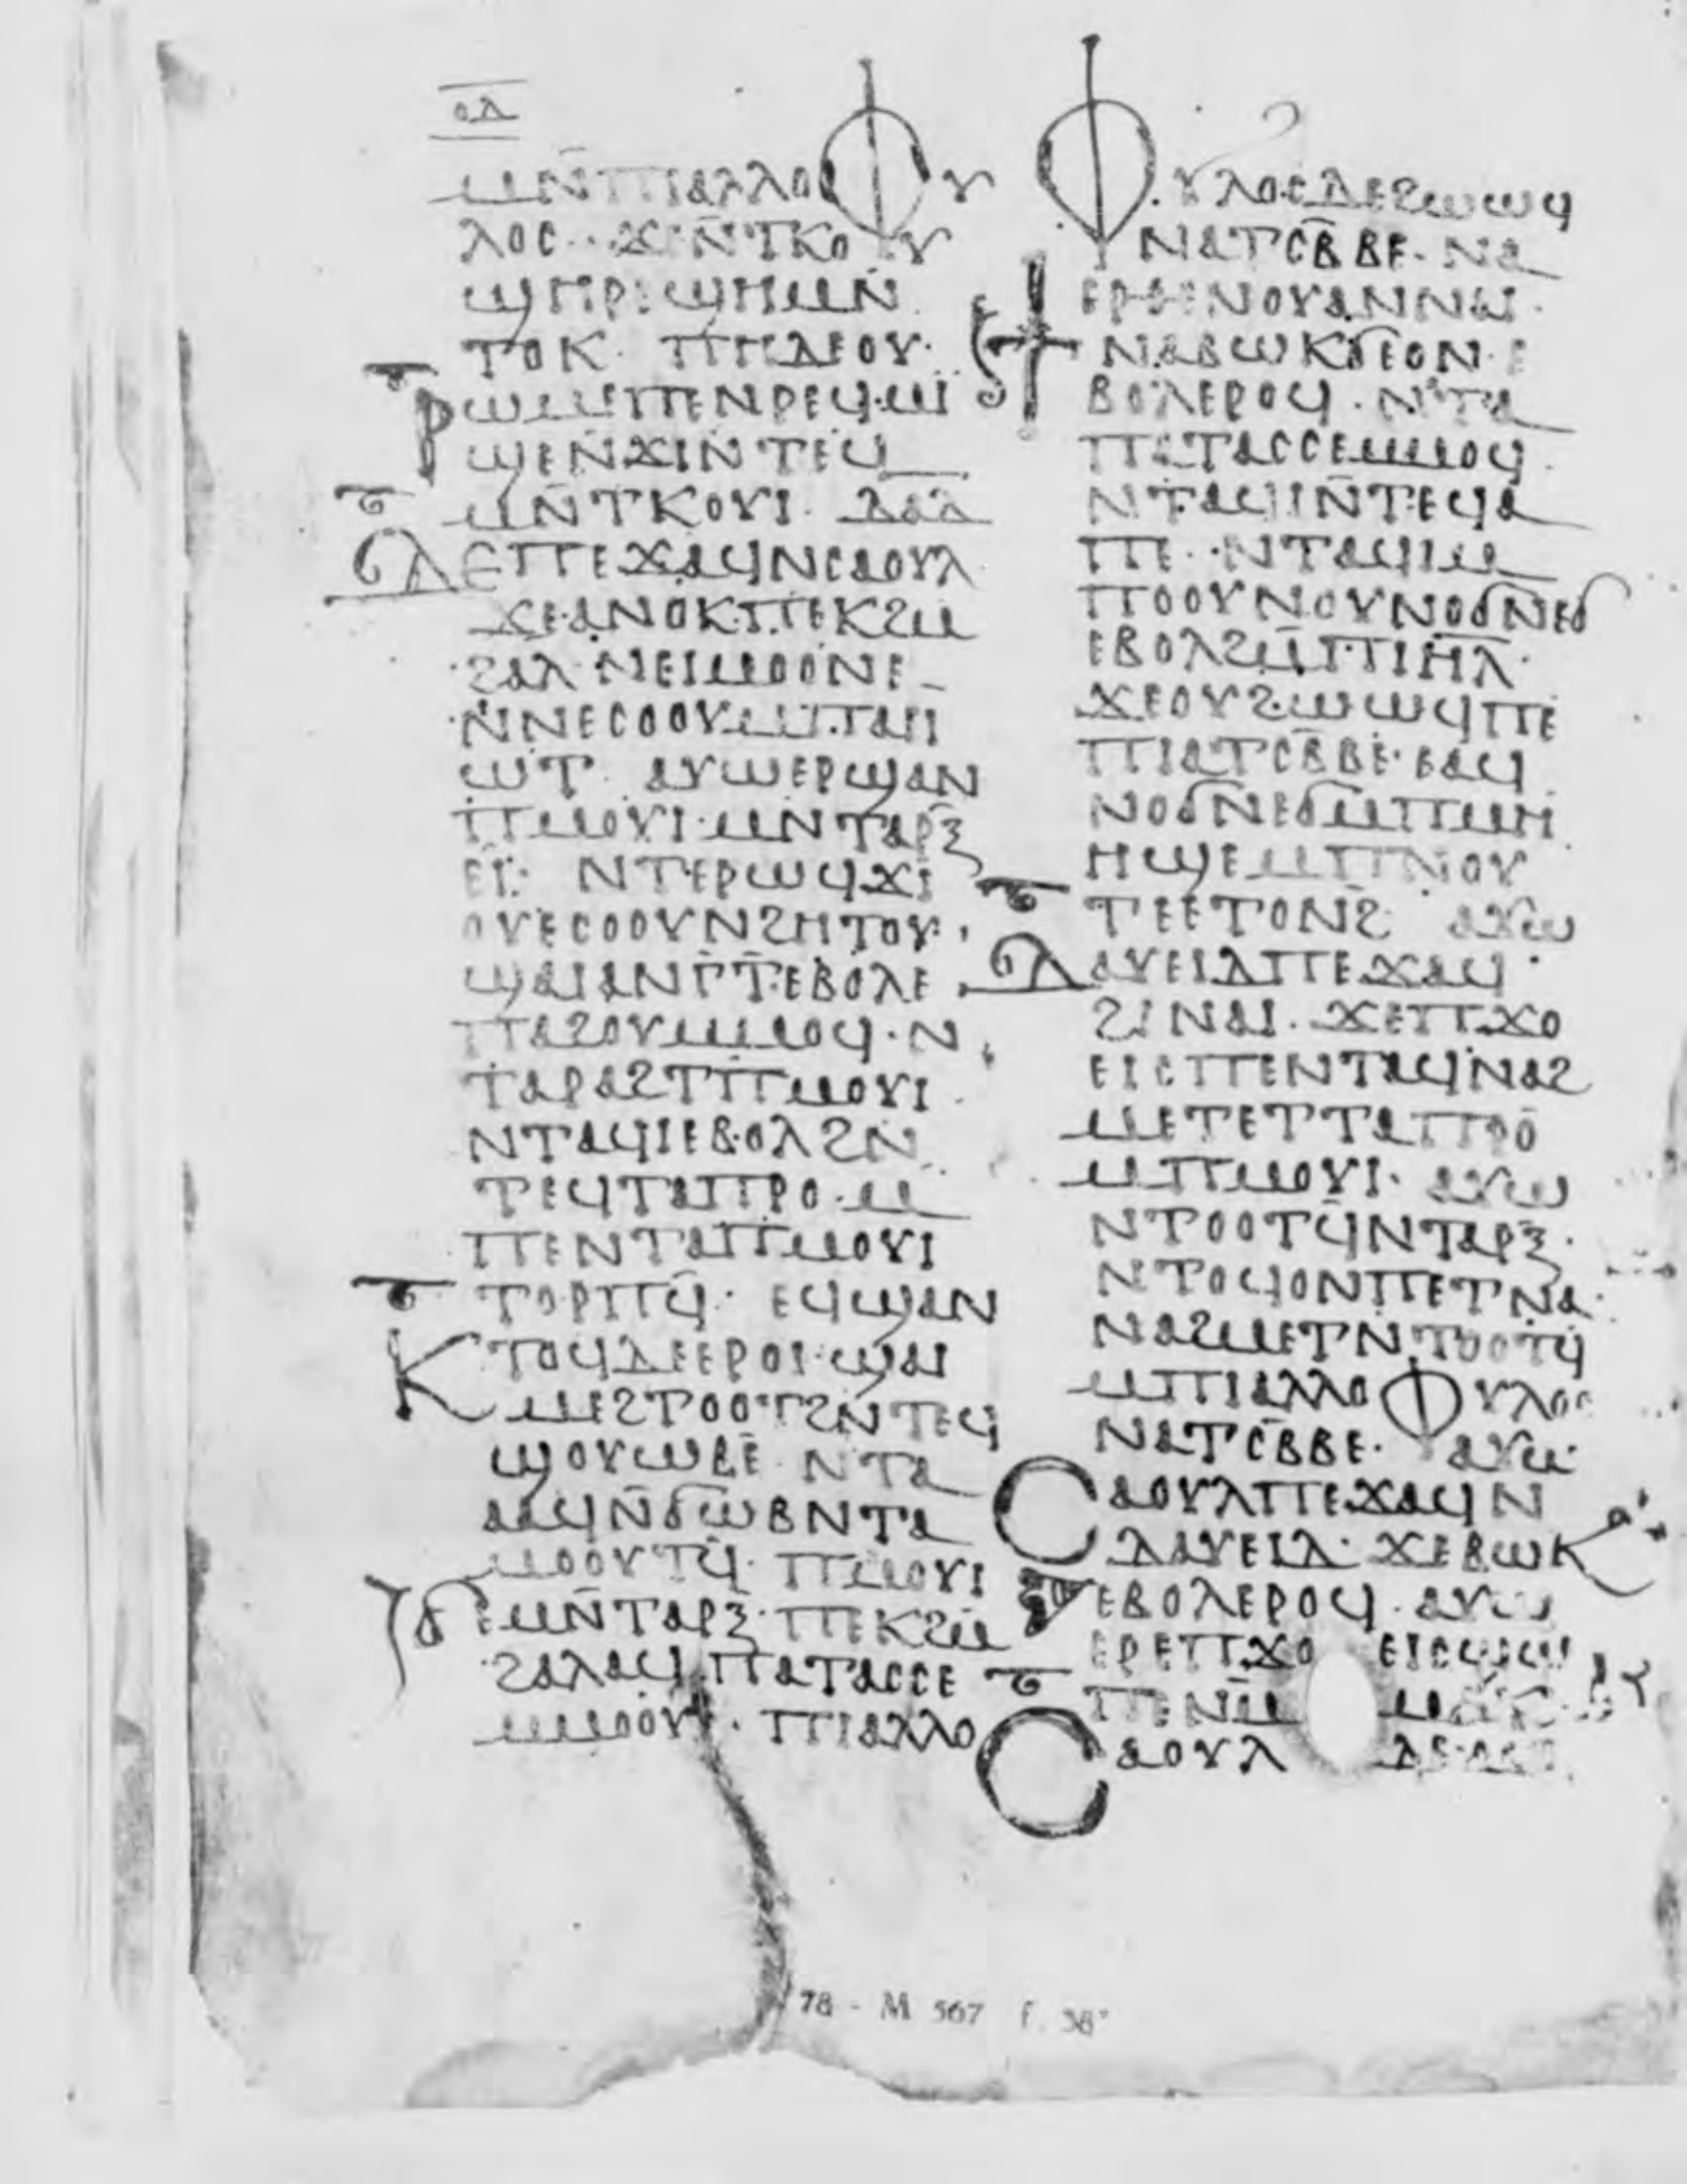 ⲟⲇ
ⲙⲛ̄ⲡⲓⲁⲗⲗⲟⲫⲩ
ⲗⲟⲥ· ϫⲉⲛ̄ⲧⲕⲟⲩ
ϣⲏⲣⲉϣⲏⲙⲛ
ⲧⲟⲕ· ⲡⲏⲇⲉⲟⲩ
ⲣⲱⲙⲉⲡⲉⲛⲣⲉϥⲙⲓ
ϣⲉⲛϫⲓⲛⲧⲉϥ
ⲙⲛ̄ⲧⲕⲟⲩⲓ· ⲇⲁⲇ
ⲇⲉⲡⲉϫⲁϥⲛⲥⲁⲟⲩⲗ
ϫⲉⲁⲛⲟⲕⲡⲉⲕϩⲙ
ϩⲁⲗ ⲛⲉⲓⲙⲟⲟⲛⲉ
ⲛⲛⲉⲥⲟⲟⲩⲙⲡⲁⲓ
ⲱⲧ· ⲁⲩⲱⲉⲣϣⲁⲛ
ⲡⲙⲟⲩⲓ·ⲙⲛⲧⲁⲣⲝ
ⲉⲓ: ⲛⲧⲉⲣⲱϥϫⲓ
ⲟⲩⲉⲥⲟⲟⲩⲛϩⲏⲧⲟⲩ·
ϣⲁⲓⲁⲛⲅ̄ⲧ̄ⲉⲃⲟⲗⲉ
ⲡⲁϩⲟⲩⲙⲙⲟϥ· ⲛ
ⲧⲁⲣⲁϩⲧⲡⲙⲟⲩⲓ
ⲛⲧⲁϥⲓⲉⲃⲟⲗϩⲛ
ⲧⲉϥⲧⲁⲡⲣⲟ·ⲙ
ⲡⲉⲛⲧⲁⲡⲙⲟⲩⲓ
ⲧⲟⲣⲡϥ̄· ⲉϥϣⲁⲛ
ⲕⲧⲟϥⲇⲉⲉⲣⲟⲓ·ϣⲁⲓ
ⲙⲉϩⲧⲟⲟⲧϩⲛⲧⲉϥ
ϣⲟⲩⲱⲃⲉ ⲛⲧⲁ
ⲁⲁϥⲛ̄ϭⲱⲃⲛⲧⲁ
ⲙⲟⲟⲩⲧϥ̄· ⲡⲙⲟⲩⲓ
ϭⲉⲙⲛ̄ⲧⲁⲣⲝ· ⲡⲉⲕϩⲙ
ϩⲁⲗⲁϥⲡⲁⲧⲁⲥⲥⲉ
ⲙⲙⲟⲟⲩ· ⲡⲓⲁⲗⲗⲟ
ⲫⲩⲗⲟⲥⲇⲉϩⲱⲱϥ
ⲛⲁⲧⲥⲃ̄ⲃⲉ· ⲛⲁ
ⲉⲣⲑⲉⲛⲟⲩⲁⲛⲛⲁⲓ·
ϯⲛⲁⲃⲱⲕϭⲉⲟⲛ·ⲉ
ⲃⲟⲗⲉⲣⲟϥ· ⲛⲧⲁ
ⲡⲁⲧⲁⲥⲥⲉⲙⲙⲟϥ
ⲛⲧⲁϥⲓⲛ̄ⲧⲉϥⲁ
ⲡⲉ· ⲛⲧⲁϥⲓⲙ
ⲡⲟⲟⲩⲛⲟⲩⲛⲟϭⲛⲉϭ
ⲉⲃⲟⲗϩⲙ̄ⲡⲓⲏⲗ·
ϫⲉⲟⲩϩⲱⲱϥⲡⲉ
ⲡⲓⲁⲧⲥⲃ̄ⲃⲉ·ⲉⲁϥ
ⲛⲟϭⲛⲉϭⲙⲡⲙⲏ
ⲏϣⲉⲙⲡⲛⲟⲩ
ⲧⲉⲉⲧⲟⲛϩ̄ ⲁⲩⲱ
ⲇⲁⲩⲉⲓⲇⲡⲉϫⲁϥ·
ϩⲓⲛⲁⲓ· ϫⲉⲡϫⲟ
ⲉⲓⲥⲡⲉⲛⲧⲁϥⲛⲁϩ
ⲙⲉⲧⲉⲧⲧⲁⲡⲣⲟ
ⲙⲡⲙⲟⲩⲓ· ⲁⲩⲱ
ⲛⲧⲟⲟⲧϥ̄ⲛⲧⲁⲣⲝ·
ⲛⲧⲟϥⲟⲛⲡⲉⲧⲛⲁ
ⲛⲁϩⲙⲉⲧⲛⲧⲟⲟⲧϥ
ⲙⲡⲓⲁⲗⲗⲟⲫⲩⲗⲟⲥ
ⲛⲁⲧⲥⲃ̄ⲃⲉ· ⲁⲩⲱ
ⲥⲁⲟⲩⲗⲡⲉϫⲁϥⲛ
ⲇⲁⲩⲉⲓⲇ· ϫⲉⲃⲱⲕ
ⲉⲃⲟⲗⲉⲣⲟϥ· ⲁⲩⲱ
ⲉⲣⲉⲡϫⲟⲉⲓⲥϣⲱ
ⲡⲉⲛⲙ̄ⲙⲁⲕ·
ⲥⲁⲟⲩⲗ ⲇⲉ
78 - M 567 f. 38ᵛ